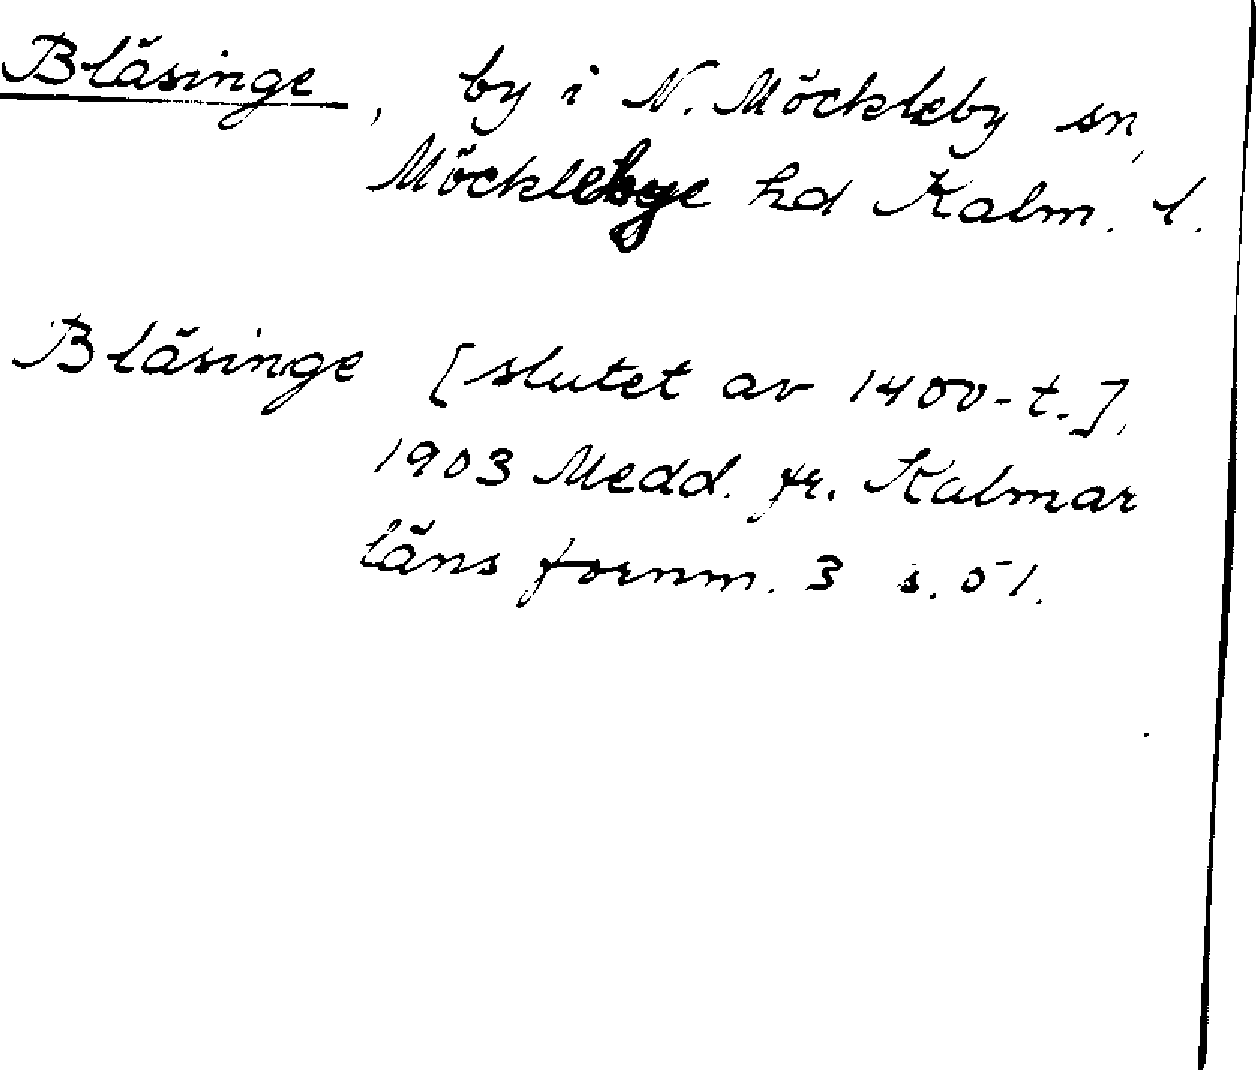 Bläsinge, by i N. Möckleby sn,
Möcklebye hd Kalm. l.
Bläsinge [slutet av 1400-t.],
1903 Medd. fr. Kalmar
läns fornm. 3 s. 51.